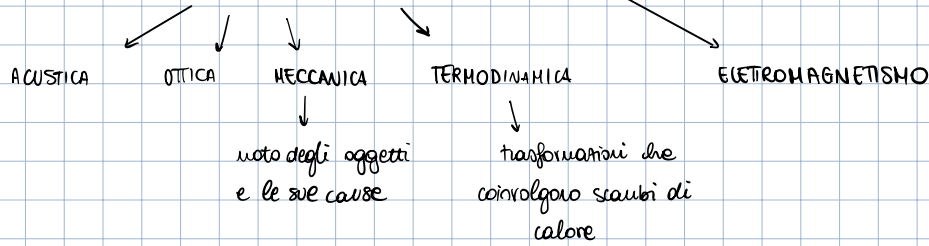 ACUSTICA OTTICA MECCANICA TERMODINAMICA ELETTROMAGNETISMO
moto degli oggetti trasformazioni che
e le sue cause coinvolgono scambi di
calore